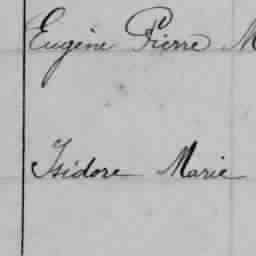 Eugène Pierre M
Isidore Marie